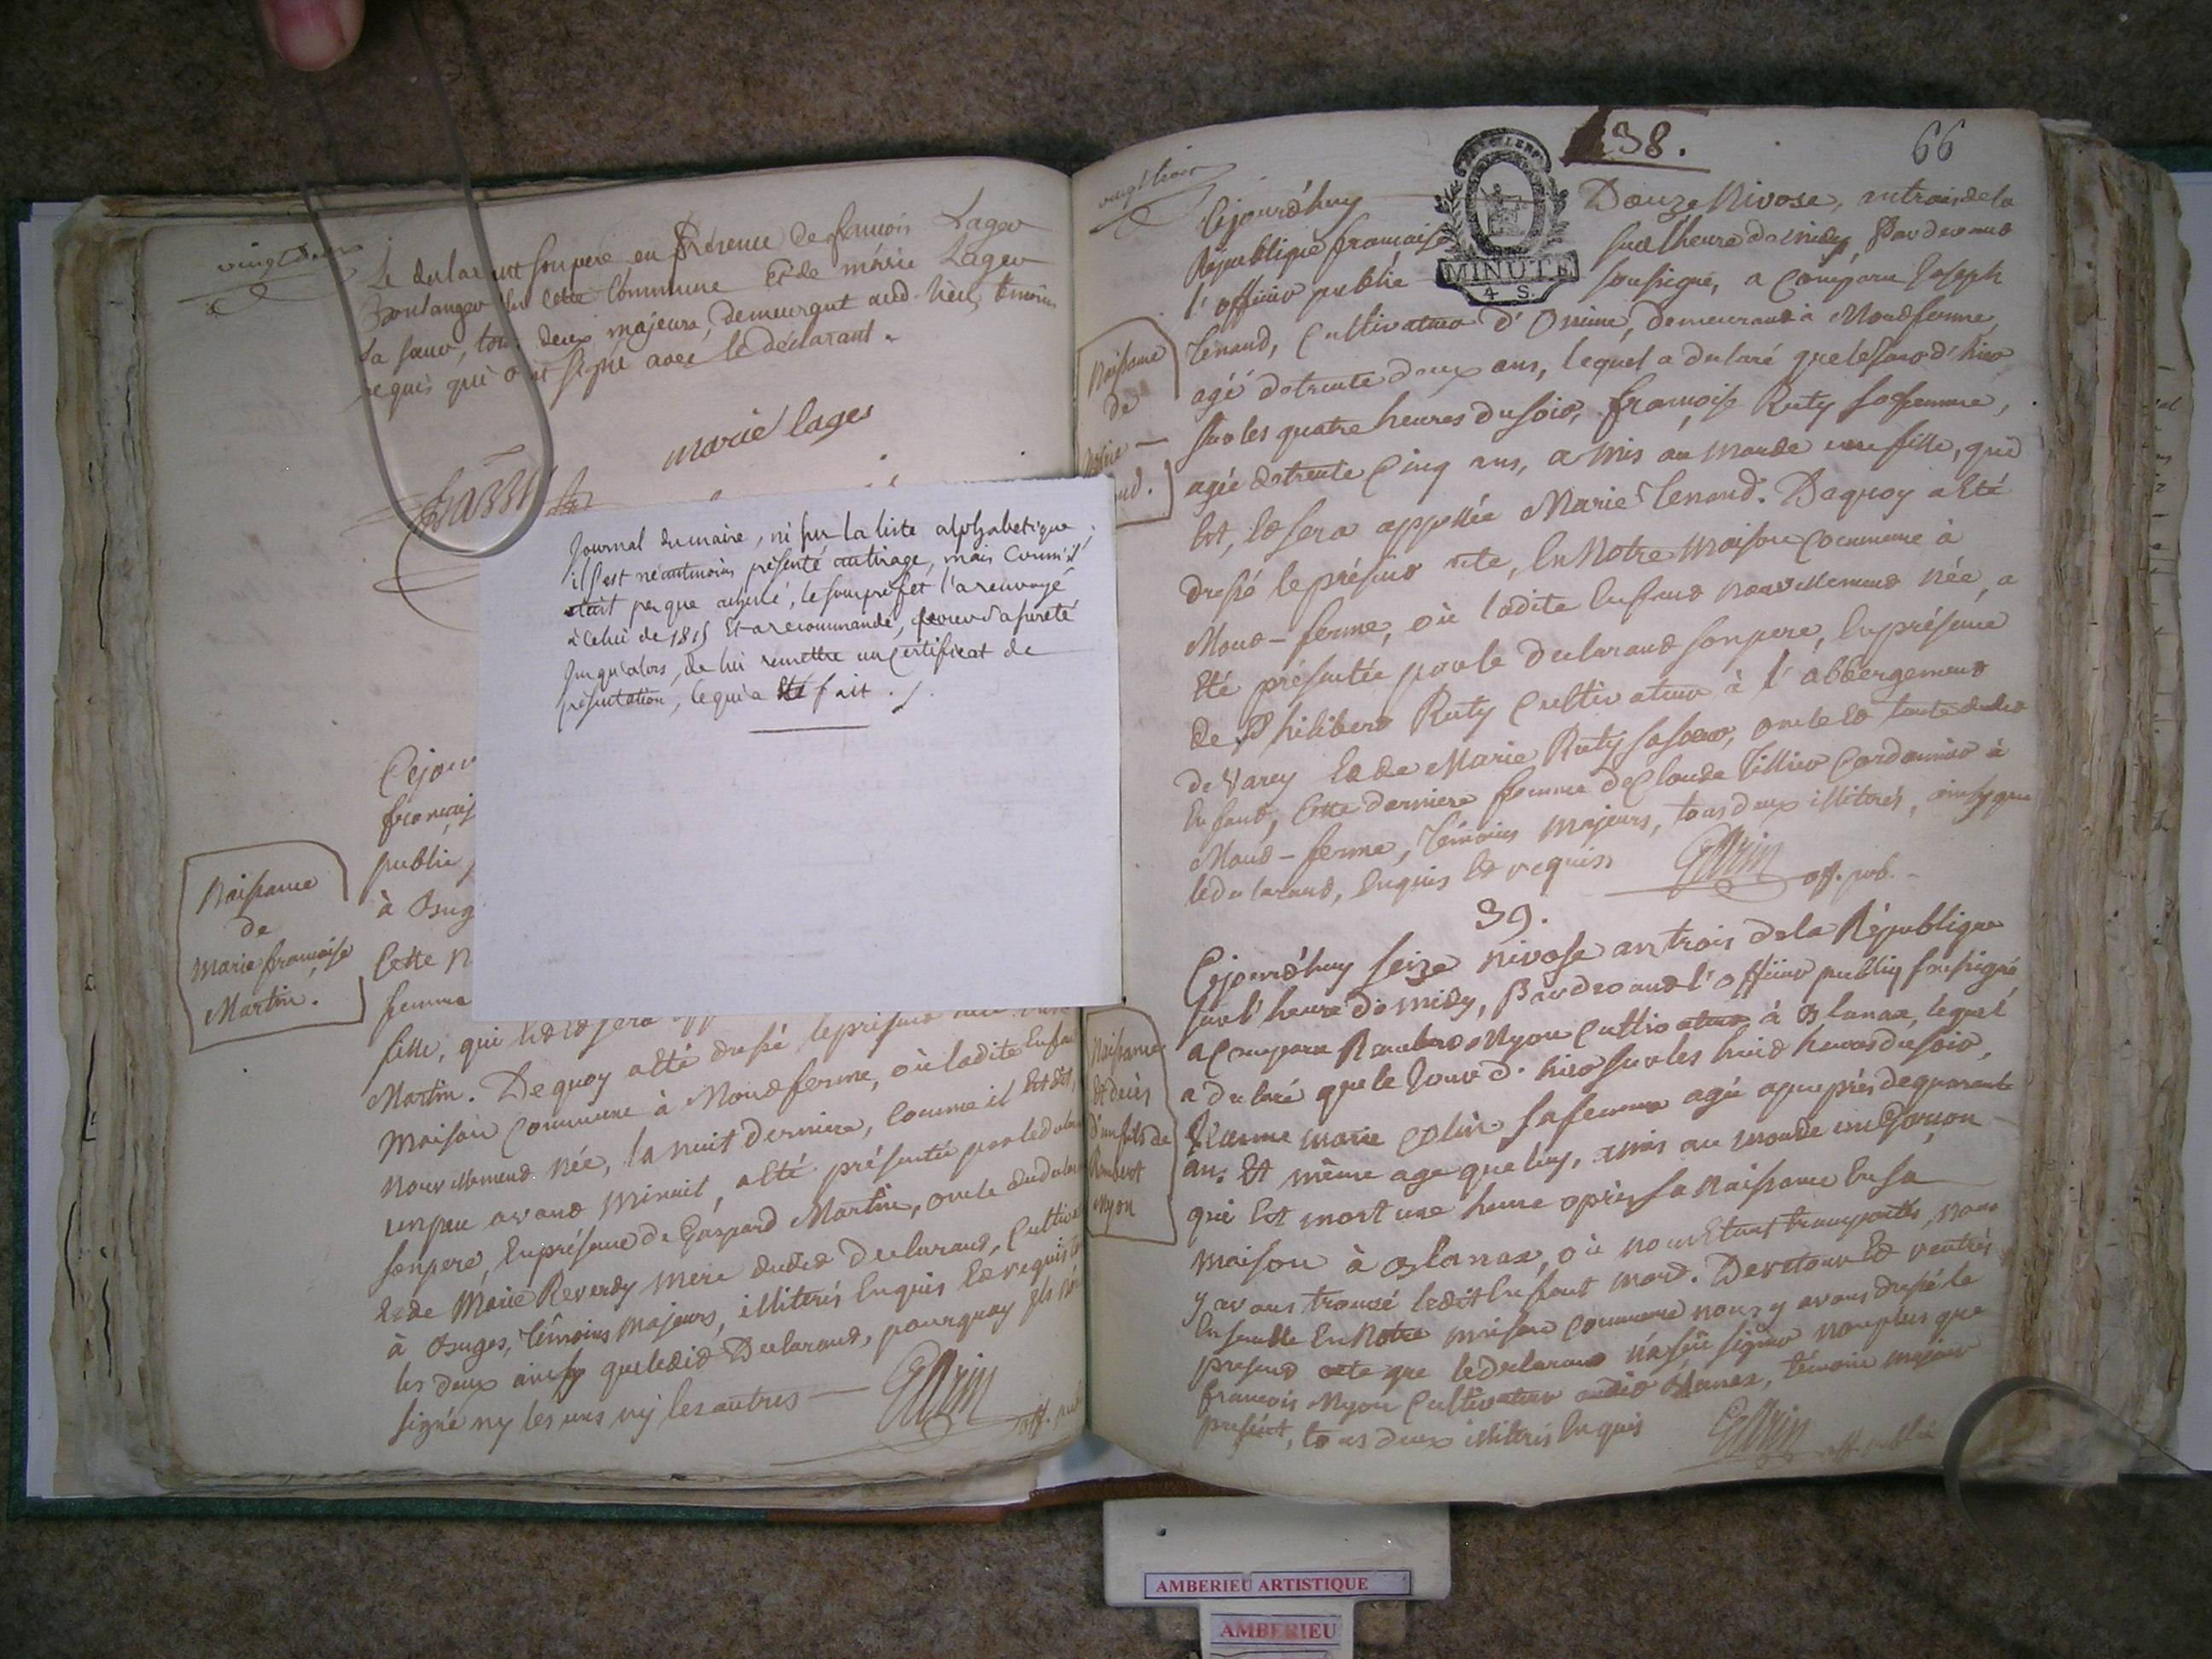 vingt deux
Le declarant son pere en présence de francois Lager
Boulanger en cette Commune Et de marie Lager
sa sœur, tous deux majeurs, demeurant aud. lieu, temoins
requis qui ont signé avec le déclarant.
marie lager
Journal du maire, ni sur la liste alphabetique,
il s'est néantmoins présenté au tirage, mais comm'il
était presque achevé, le souspréfet l'a renvoyé
à celui de 1815 Et a recommandé, pour sa sureté
Jusqu'alors, de lui remettre un certificat de
présentation, ce qui a été fait ./.
Cejour
francais
public,
à Bug
Cette n
femme
Naissance
de
Marie francoise
Martin.
fille, qui Est et sera
Martin. De quoy a été dressé le présent acte
maison Commune à Montferme, où ladite Enfan
nouvellement née, la nuit derniere, comme il Est dit,
un peu avant minuit, a été présentée par le decla
son pere, En présence de Gaspard Martin, oncle dud
Et de Marie Reverdy mere dudit declarant, Cultiv
à Buges, témoins majeurs, illiterés Enquis Et requis
les deux ainsy que ledit Declarant, pourquoy ils n'o
signé ny les uns ny les autres
off. pub
vingt trois
138.
66
MINUTE
4 S.
Cejourd'huy Douze Nivose, an trois de la
République francaise sur l'heure de midy, Pardevant
l'officier public soussigné, a Comparu Joseph
Tenand, Cultivateur d'Onime, demeurant à Montferme,
agé de trente deux ans, lequel a declaré que le jour d'hier
sur les quatre heures du soir, francoise Ruty sa femme,
agée de trente Cinq ans, a mis au monde une fille, qui
Est, Et sera appellée Marie Tenand. De quoy a Eté
dressé le présent acte, En Notre maison Commune à
Mont-ferme, où ladite Enfant nouvellement née, a
Eté présentée par le declarant son pere, En présence
de Philibert Ruty Cultivateur à l'abbergement
de Varey Et de Marie Ruty sa sœur, oncle Et tante dudit
Enfant, Cette derniere femme de Claude Tillier Cordonnier à
Mont-ferme, témoins majeurs, tous deux illiterés, ainsy que
le declarant, Enquis Et requis
off. pub.
Naissance
de
Marie
nd.
39.
Cejourd'huy seize nivose an trois de la République
sur l'heure de midy, Pardevant l'officier public soussigné
a Comparu Rambert Myon Cultivateur à Blanaz, lequel
a declaré que le jour d'hier sur les huit heures du soir,
Jeanne marie Colin sa femme agée a peu près de quarante
ans Et même age que luy, a mis au monde un Garcon
qui Est mort une heure après sa naissance En sa
maison à Blanaz, où nous Etant transportés, nous
y avons trouvé ledit Enfant mort. De retour Et rentrés
Ensemble En Notre maison Commune nous y avons dressé le
présent acte que le declarant n'a sçu signer non plus que
francois Myon Cultivateur audit Blanaz, témoin majeur
présent, tous deux illiterés Enquis
off. public
Naissance
Et décès
D'un fils de
Rambert
Myon
AMBERIEU ARTISTIQUE
AMBERIEU